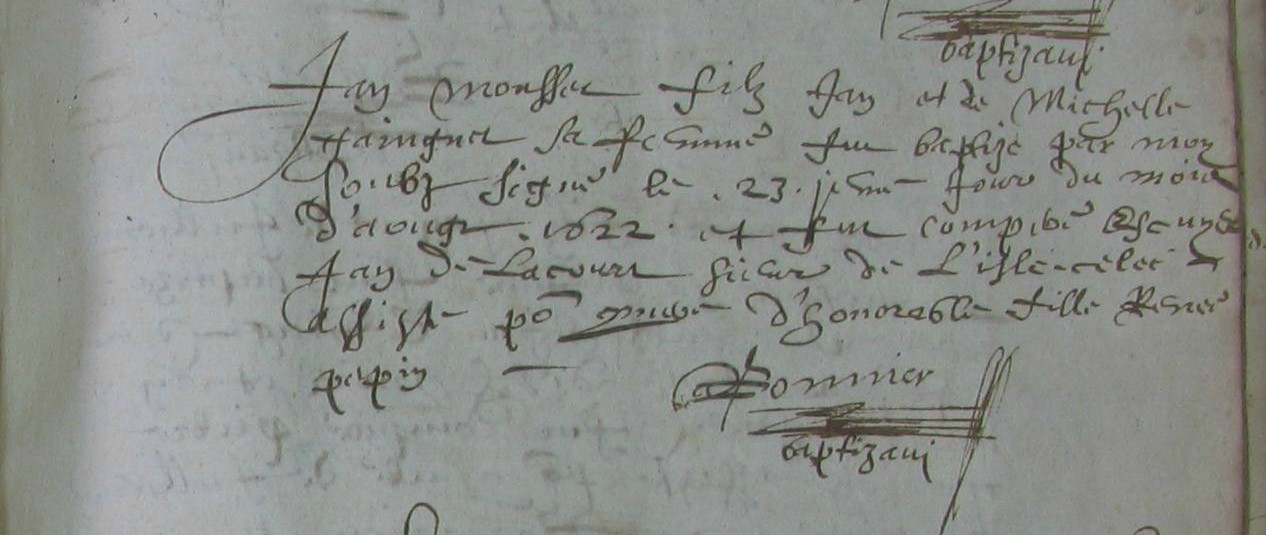 baptizavi
Jan mousset filz Jan et de Michelle
sa femme fut baptizé par moy
soubz signé le .23.iesme jour du mois
d'aougt .1622. et fut compere Escuyer
Jan de Lacourt sieur de L'isle-celee
assisté po d'honorable fille Renee
pepin —
Bonnier
baptizavi